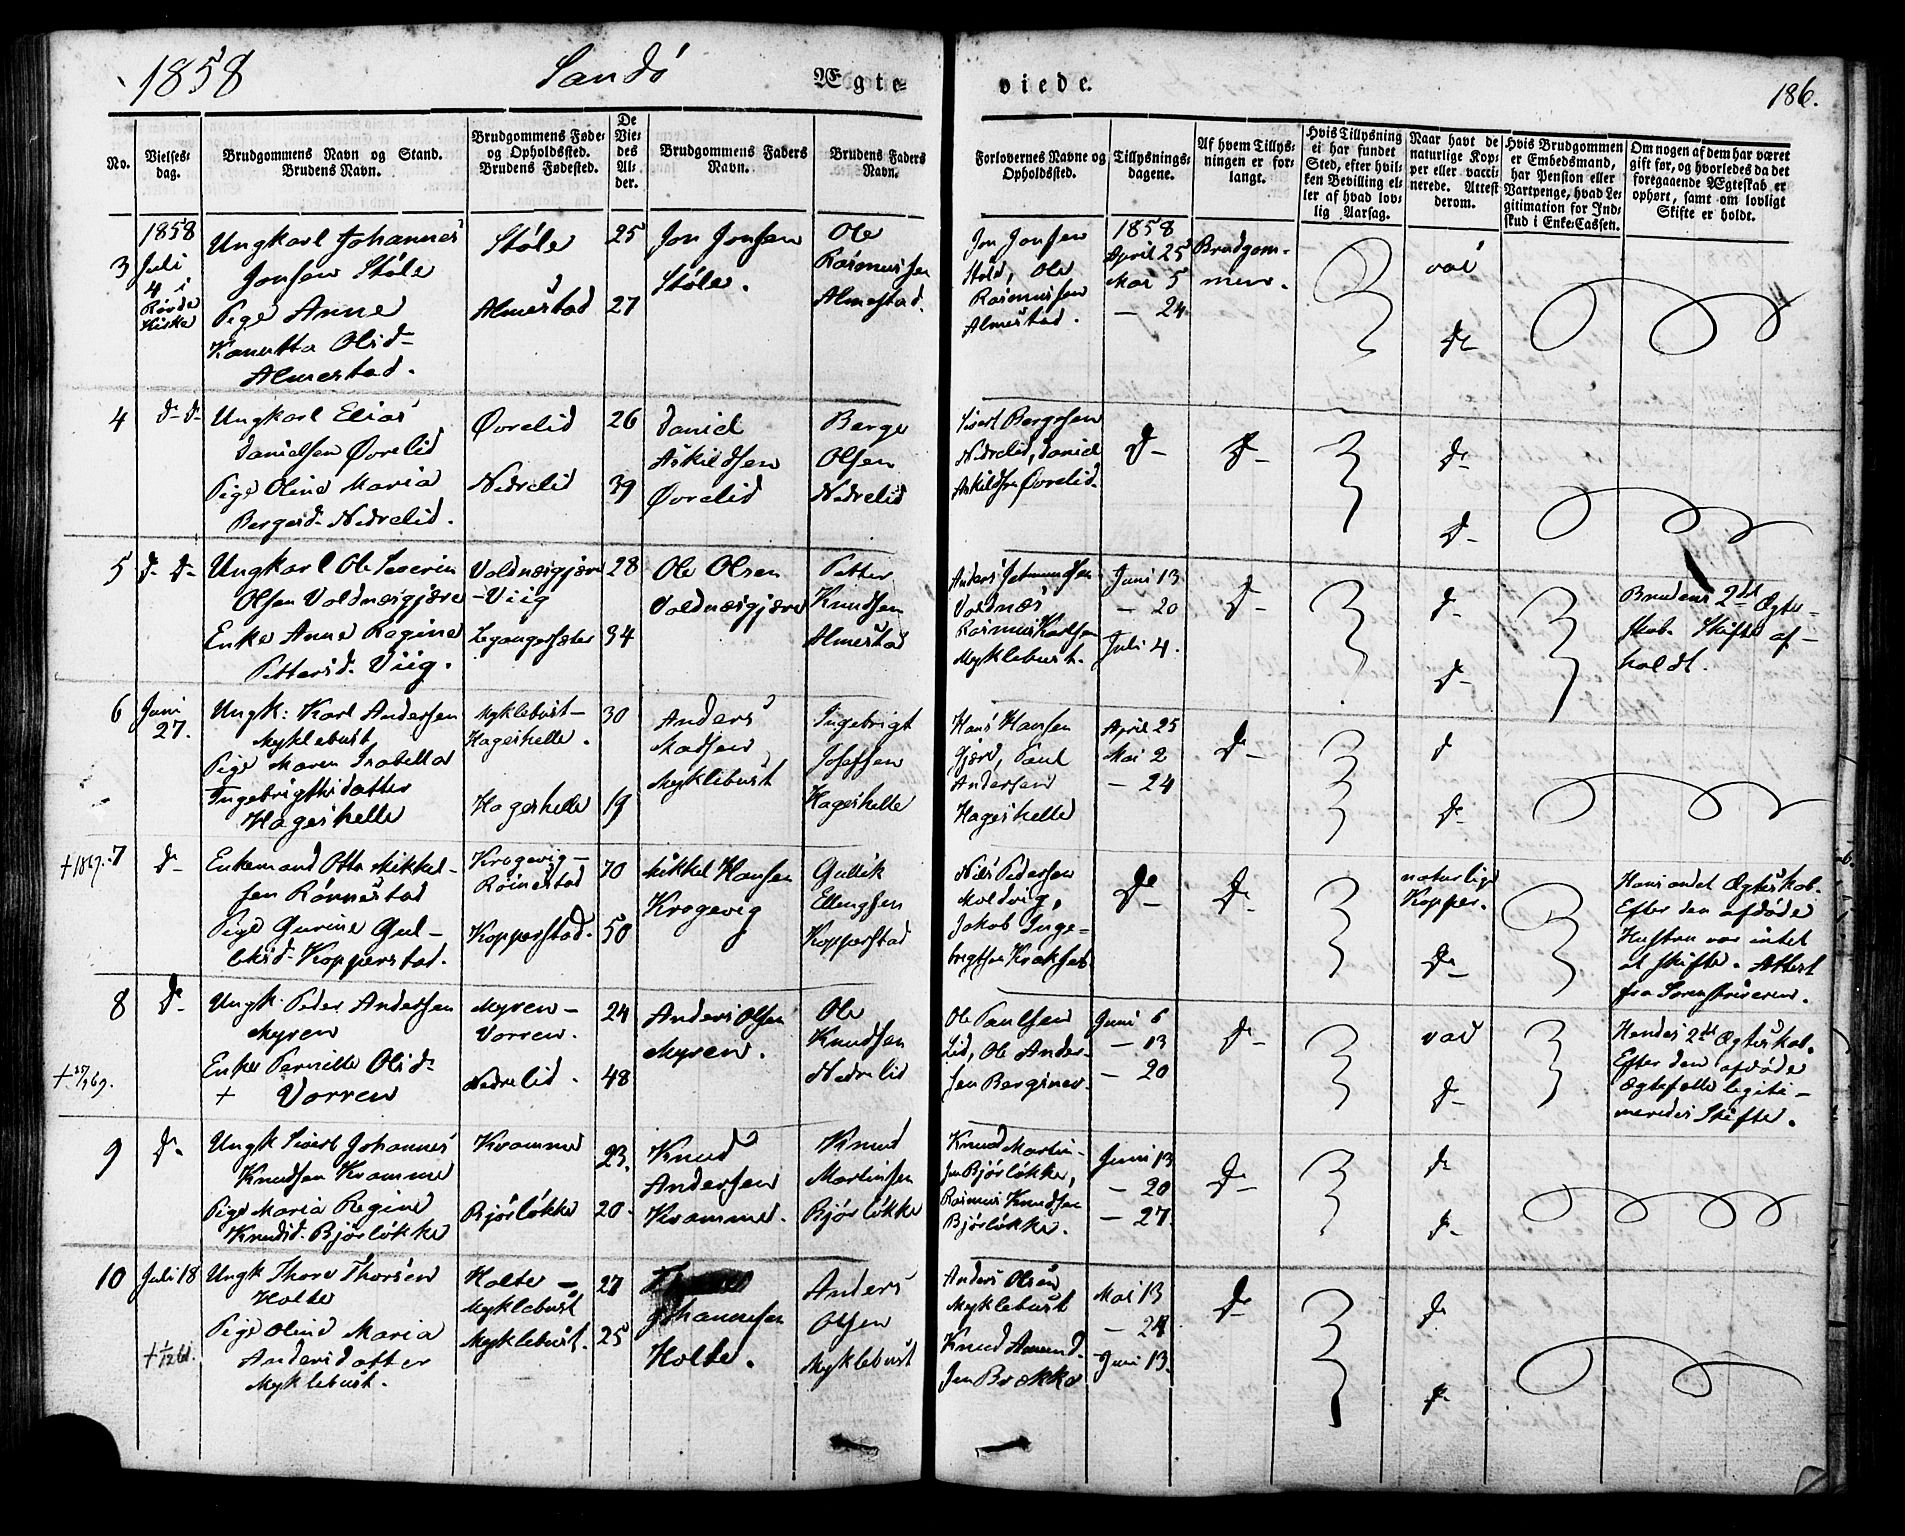 1858 Sandö Ægte- viede. 186.
No.
Vielses-
dag.
Brudgommens Navn og Stand.
Brudens Navn.
Brudgommens Føde-
og Opholdssted.
Brudens Fødested.
De
Vie-
des
Al-
der.
Brudgommens Faders
Navn.
Brudens Faders
Navn.
Forlovernes Navne og
Opholdssted.
Tillysnings-
dagene.
Af hvem Tillys-
ningen er for-
langt.
Hvis Tillysning
ei har fundet
Sted, efter hvil-
ken Bevilling el-
ler af hvad lov-
lig Aarsag.
Naar havt de
naturlige Kop-
per eller vacci-
nerede. Attest
derom.
Hvis Brudgommen
er Embedsmand,
har Pension eller
Vartpenge, hvad Le-
gitimation for Ind-
skud i Enke-Cassen.
Om nogen af dem har været
gift før, og hvorledes da det
foregaaende Ægteskab er
ophørt, samt om lovligt
Skifte er holdt.
3
1858
Juli
4 i
Røvde
Kirke
Ungkarl Johannes
Jonsen Støle
Pige Anne
Olsd-
Almestad.
Støle
Almestad
25
27
Jon Jonsen
Støle.
Ole
Rasmussen
Almestad.
Jon Jonsen
Støle, Ole
Rasmussen
Almestad.
1858
April 25
Mai 5
— 24
Brudgom-
men.
vac
do
4
do do
Ungkarl Elias
Danielsen Øvrelid
Pige Oline Maria
Bergesd. Nedrelid.
Øvrelid
Nedrelid
26
39
Daniel
Askildsen
Øvrelid
Berge
Olsen
Nedrelid
Sivert Bergesen
Nedrelid, Daniel
Askildsen Øvrelid.
do
do
do
do
5
do do
Ungkarl Ole Severin
Olsen Voldnæsgjære
Enke Anne Regine
Pettersd. Viig.
Voldnæsgjære
-Viig
Legangersæter
28
34
Ole Olsen
Voldnæsgjære
Petter
Knudsen
Almestad
Anders
Voldnæs
Rasmus Karlsen
Myklebust.
Juni 13
— 20
Juli 4.
do
do
do
Brudens 2det Ægte-
skab. Skifte af-
holdt.
6
Juni
27.
Ungk: Karl Andersen
Myklebust
Pige Maren Isabella
Ingebrigtsdatter
Hageskelle
Myklebust-
Hageskelle.
Hageskelle
30
19
Anders
Madsen
Myklebust
Ingebrigt
Josefsen
Hageskelle
Hans Hansen
Gjære, Paul
Andersen
Hageskelle
April 25
Mai 2
— 24
do
d
do
+1867.
7
do
Enkemand Otto Mikkel-
sen Rönnestad
Pige Gurine Gul-
liksd. Kopperstad.
Krogevig-
Rönnestad
Kopperstad.
70
50
Mikkel Hansen
Krogevig
Gullik
Ellengsen
Kopperstad
Nils Pedersen
Moldvig,
Jakob Inge-
brigtsen
do
do
naturlige
Kopper.
do
Hans andet Ægteskab.
Efter den afdøde
Hustru var intet
at skifte. Attest
fra Sorenskriveren.
8
do
Ungk. Peder Andersen
Myren
Enke Pernille Olsd.
+ Vorren
Myren-
Vorren.
Nedrelid.
24
48
Anders Olsen
Myren.
Ole
Knudsen
Nedrelid
Ole Paulsen
Lid, Ole Ander-
sen
Juni 6
— 13
— 20
do
vac
do
Hendes 2det Ægteskab.
Efter den afdøde
Ægtefælle legiti-
meredes Skifte.
9
do
Ungk Sivert Johannes
Knudsen Kvamme
Pige Maria Regine
Knudsd. Bjørløkke
Kvamme
Bjørløkke
23.
20.
Knud
Andersen
Kvamme.
Knud
Martinsen
Bjørløkke
Knud Martin-
sen Bjørløkke,
Rasmus Knudsen
Bjørløkke.
Juni 13
— 20
— 27.
do
do
do
10
Juli 18
Ungk Thore Thorsen
Holte
Pige Oline Maria
Andersdatter
Myklebust.
Holte -
Myklebust
Myklebust.
27
25
Johannesen
Holte.
Anders
Olsen
Myklebust
Anders Olsen
Myklebust
Knud Amund-
sen Brække
Mai 13
— 24
Juni 13.
do
do
do